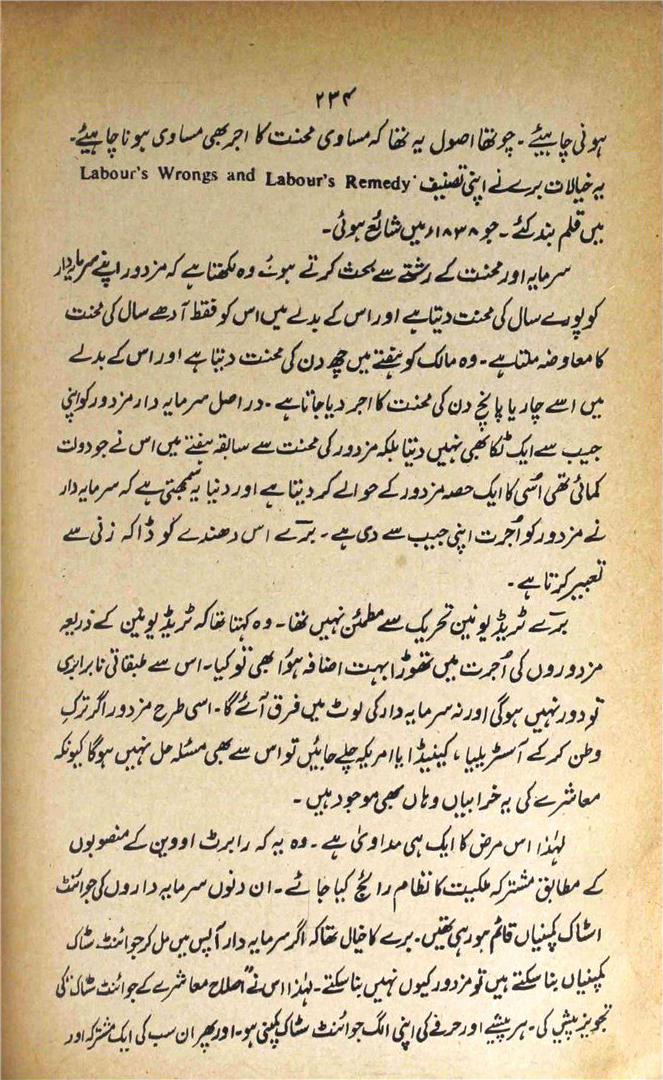 ۲۳۴
ہونی چاہیئے ۔ چوتھا اصول یہ تھا کہ مساوی محنت کا اجر بھی مساوی ہونا چاہیئے۔
یہ خیالات برے نے اپنی تصنیف Labour's Wrongs and Labour's Remedy
میں قلم بند کئے ۔ جو ۱۸۳۸ء میں شائع ہوئی ۔
سرمایہ اور محنت کے رشتے سے بحث کرتے ہوئے وہ لکھتا ہے کہ مزدور اپنے سرمایہ دار
کو پورے سال کی محنت دیتا ہے اور اس کے بدلے میں اس کو فقط آدھے سال کی محنت
کا معاوضہ ملتا ہے ۔ وہ مالک کو ہفتے میں چھ دن کی محنت دیتا ہے اور اس کے بدلے
میں اسے چار یا پانچ دن کی محنت کا اجر دیا جاتا ہے ۔ در اصل سرمایہ دار مزدور کو اپنی
جیب سے ایک ٹکا بھی نہیں دیتا بلکہ مزدور کی محنت سے سابقہ ہفتے میں اس نے جو دولت
کمائی تھی اُسی کا ایک حصہ مزدور کے حوالے کر دیتا ہے اور دنیا یہ سمجھتی ہے کہ سرمایہ دار
نے مزدور کو اُجرت اپنی جیب سے دی ہے ۔ برے اس دھندے کو ڈاکہ زنی سے
تعبیر کرتا ہے ۔
برے ٹریڈ یونین تحریک سے مطمئن نہیں تھا ۔ وہ کہتا تھا کہ ٹریڈ یونین کے ذریعہ
مزدوروں کی اُجرت میں تھوڑا بہت اضافہ ہوا بھی تو کیا ۔ اس سے طبقاتی نابرابری
تو دور نہیں ہوگی اور نہ سرمایہ دار کی لوٹ میں فرق آئے گا ۔ اسی طرح مزدور اگر ترکِ
وطن کر کے آسٹریلیا ، کینیڈا یا امریکہ چلے جائیں تو اس سے بھی مسئلہ حل نہیں ہوگا کیونکہ
معاشرے کی یہ خرابیاں وہاں بھی موجود ہیں ۔
لہٰذا اس مرض کا ایک ہی مداویٰ ہے ۔ وہ یہ کہ رابرٹ اووین کے منصوبوں
کے مطابق مشترکہ ملکیت کا نظام رائج کیا جائے ۔ ان دنوں سرمایہ داروں کی جوائنٹ
اسٹاک کمپنیاں قائم ہو رہی تھیں ۔ برے کا خیال تھا کہ اگر سرمایہ دار آپس میں مل کر جوائنٹ سٹاک
کمپنیاں بنا سکتے ہیں تو مزدور کیوں نہیں بنا سکتے ۔ لہٰذا اس نے "اصلاح معاشرے کے جوائنٹ سٹاک" کی
تجویز پیش کی ۔ ہر پیشے اور حرفے کی اپنی الگ جوائنٹ سٹاک کمپنی ہو ۔ اور پھر ان سب کی ایک مشترکہ اور